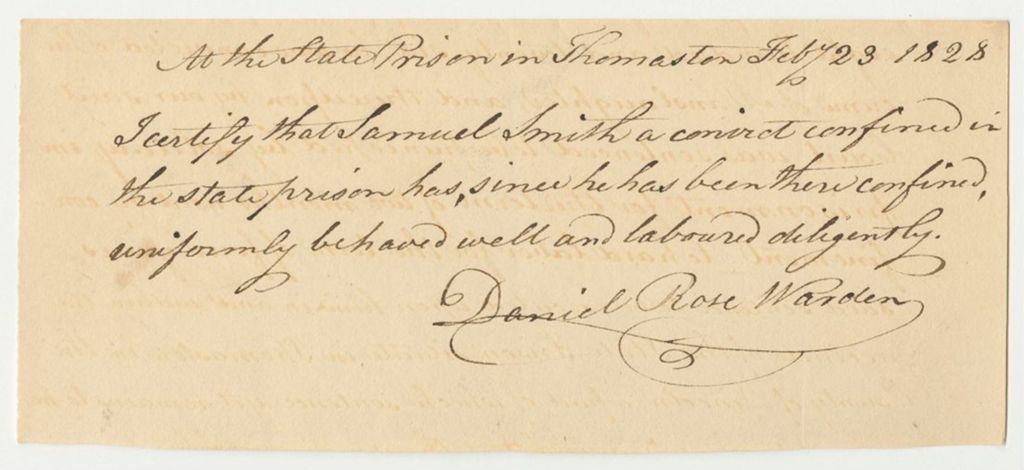 At the State Prison in Thomaston Feby 23 1828
I certify that Samuel Smith a convict confined in
the state prison has, since he has been there confined,
uniformly behaved well and laboured diligently.
Daniel Rose Warden